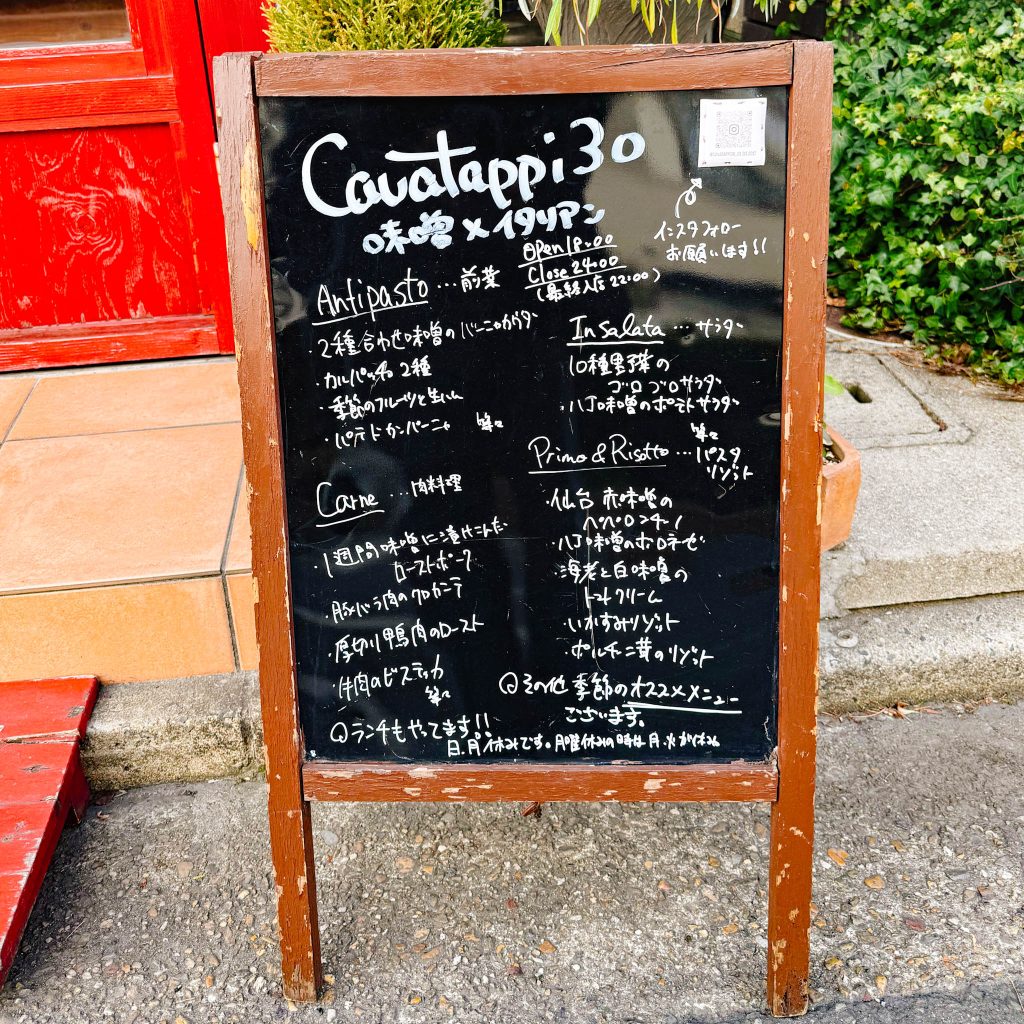 Cavatappi30
味噌×イタリアン
インスタフォロー
お願いします!!
Open 18:00
Close 24:00
(最終入店 22:00)
Antipasto…前菜
・2種合わせ味噌のバーニャカウダ
・カルパッチョ 2種
・季節のフルーツと生ハム
・パテドカンパーニャ 等々
Carne …肉料理
・1週間味噌に漬けこんだ
ローストポーク
・豚バラ肉のクロカンテ
・厚切り鴨肉のロースト
・牛肉のビステッカ
等々
Insalata…サラダ
10種野菜の
ゴロゴロサラダ
・八丁味噌のポテトサラダ
等々
Primo&Risotto…パスタ
リゾット
・仙台 赤味噌の
ペペロンチーノ
・八丁味噌のボロネーゼ
・海老と白味噌の
トマトクリーム
・いかすみリゾット
・ポルチーニ茸のリゾット
その他 季節のオススメメニュー
ございます。
ランチもやってます!!
日、月休みです。月曜休みの時は月、火が休み